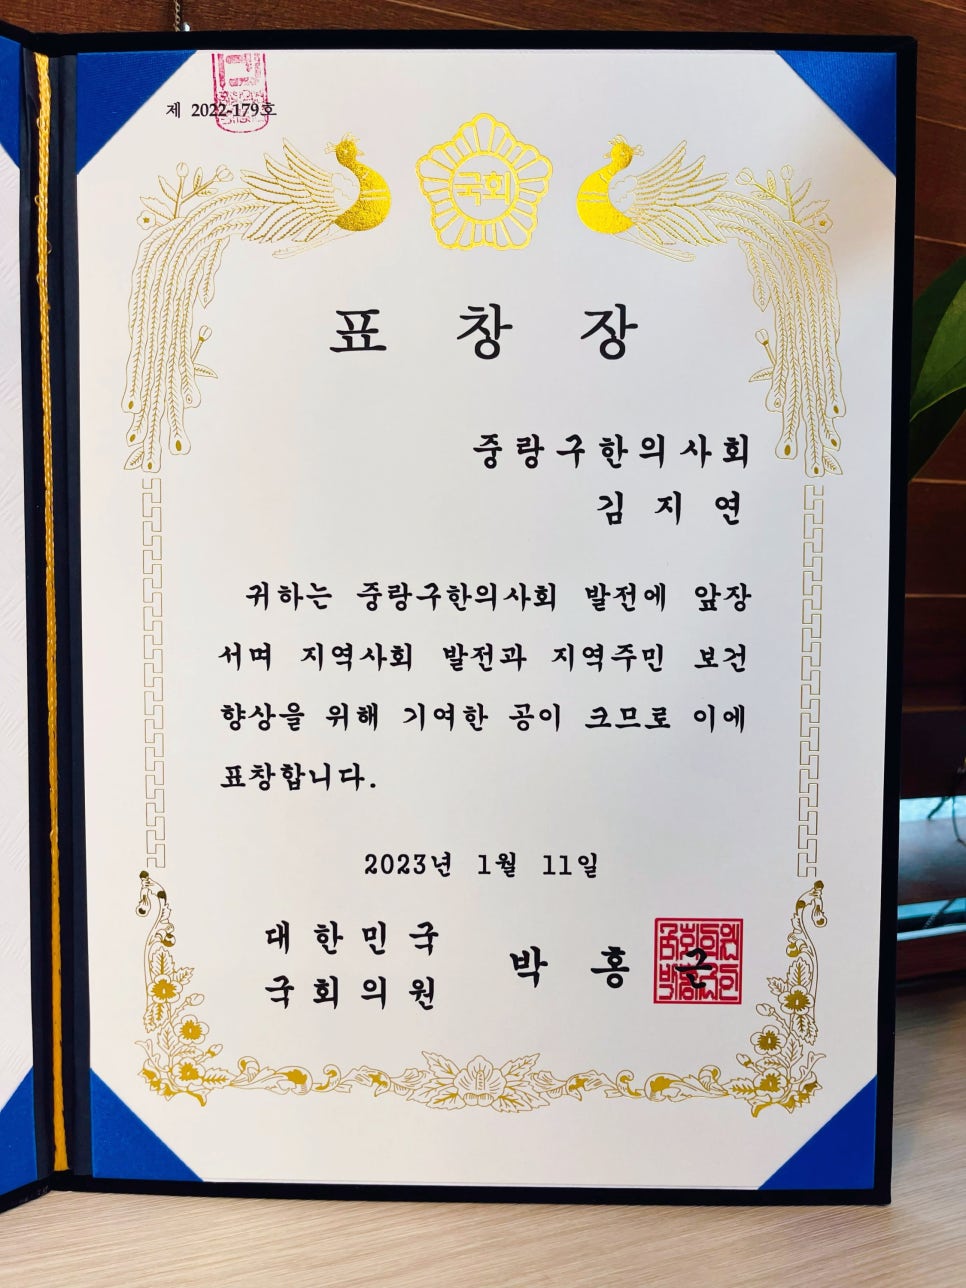 제 2022-179호
국회
표 창 장
중랑구한의사회
김 지 연
귀하는 중랑구한의사회 발전에 앞장
서며 지역사회 발전과 지역주민 보건
향상을 위해 기여한 공이 크므로 이에
표창합니다.
2023년 1월 11일
대 한 민 국
국 회 의 원
박 홍 근